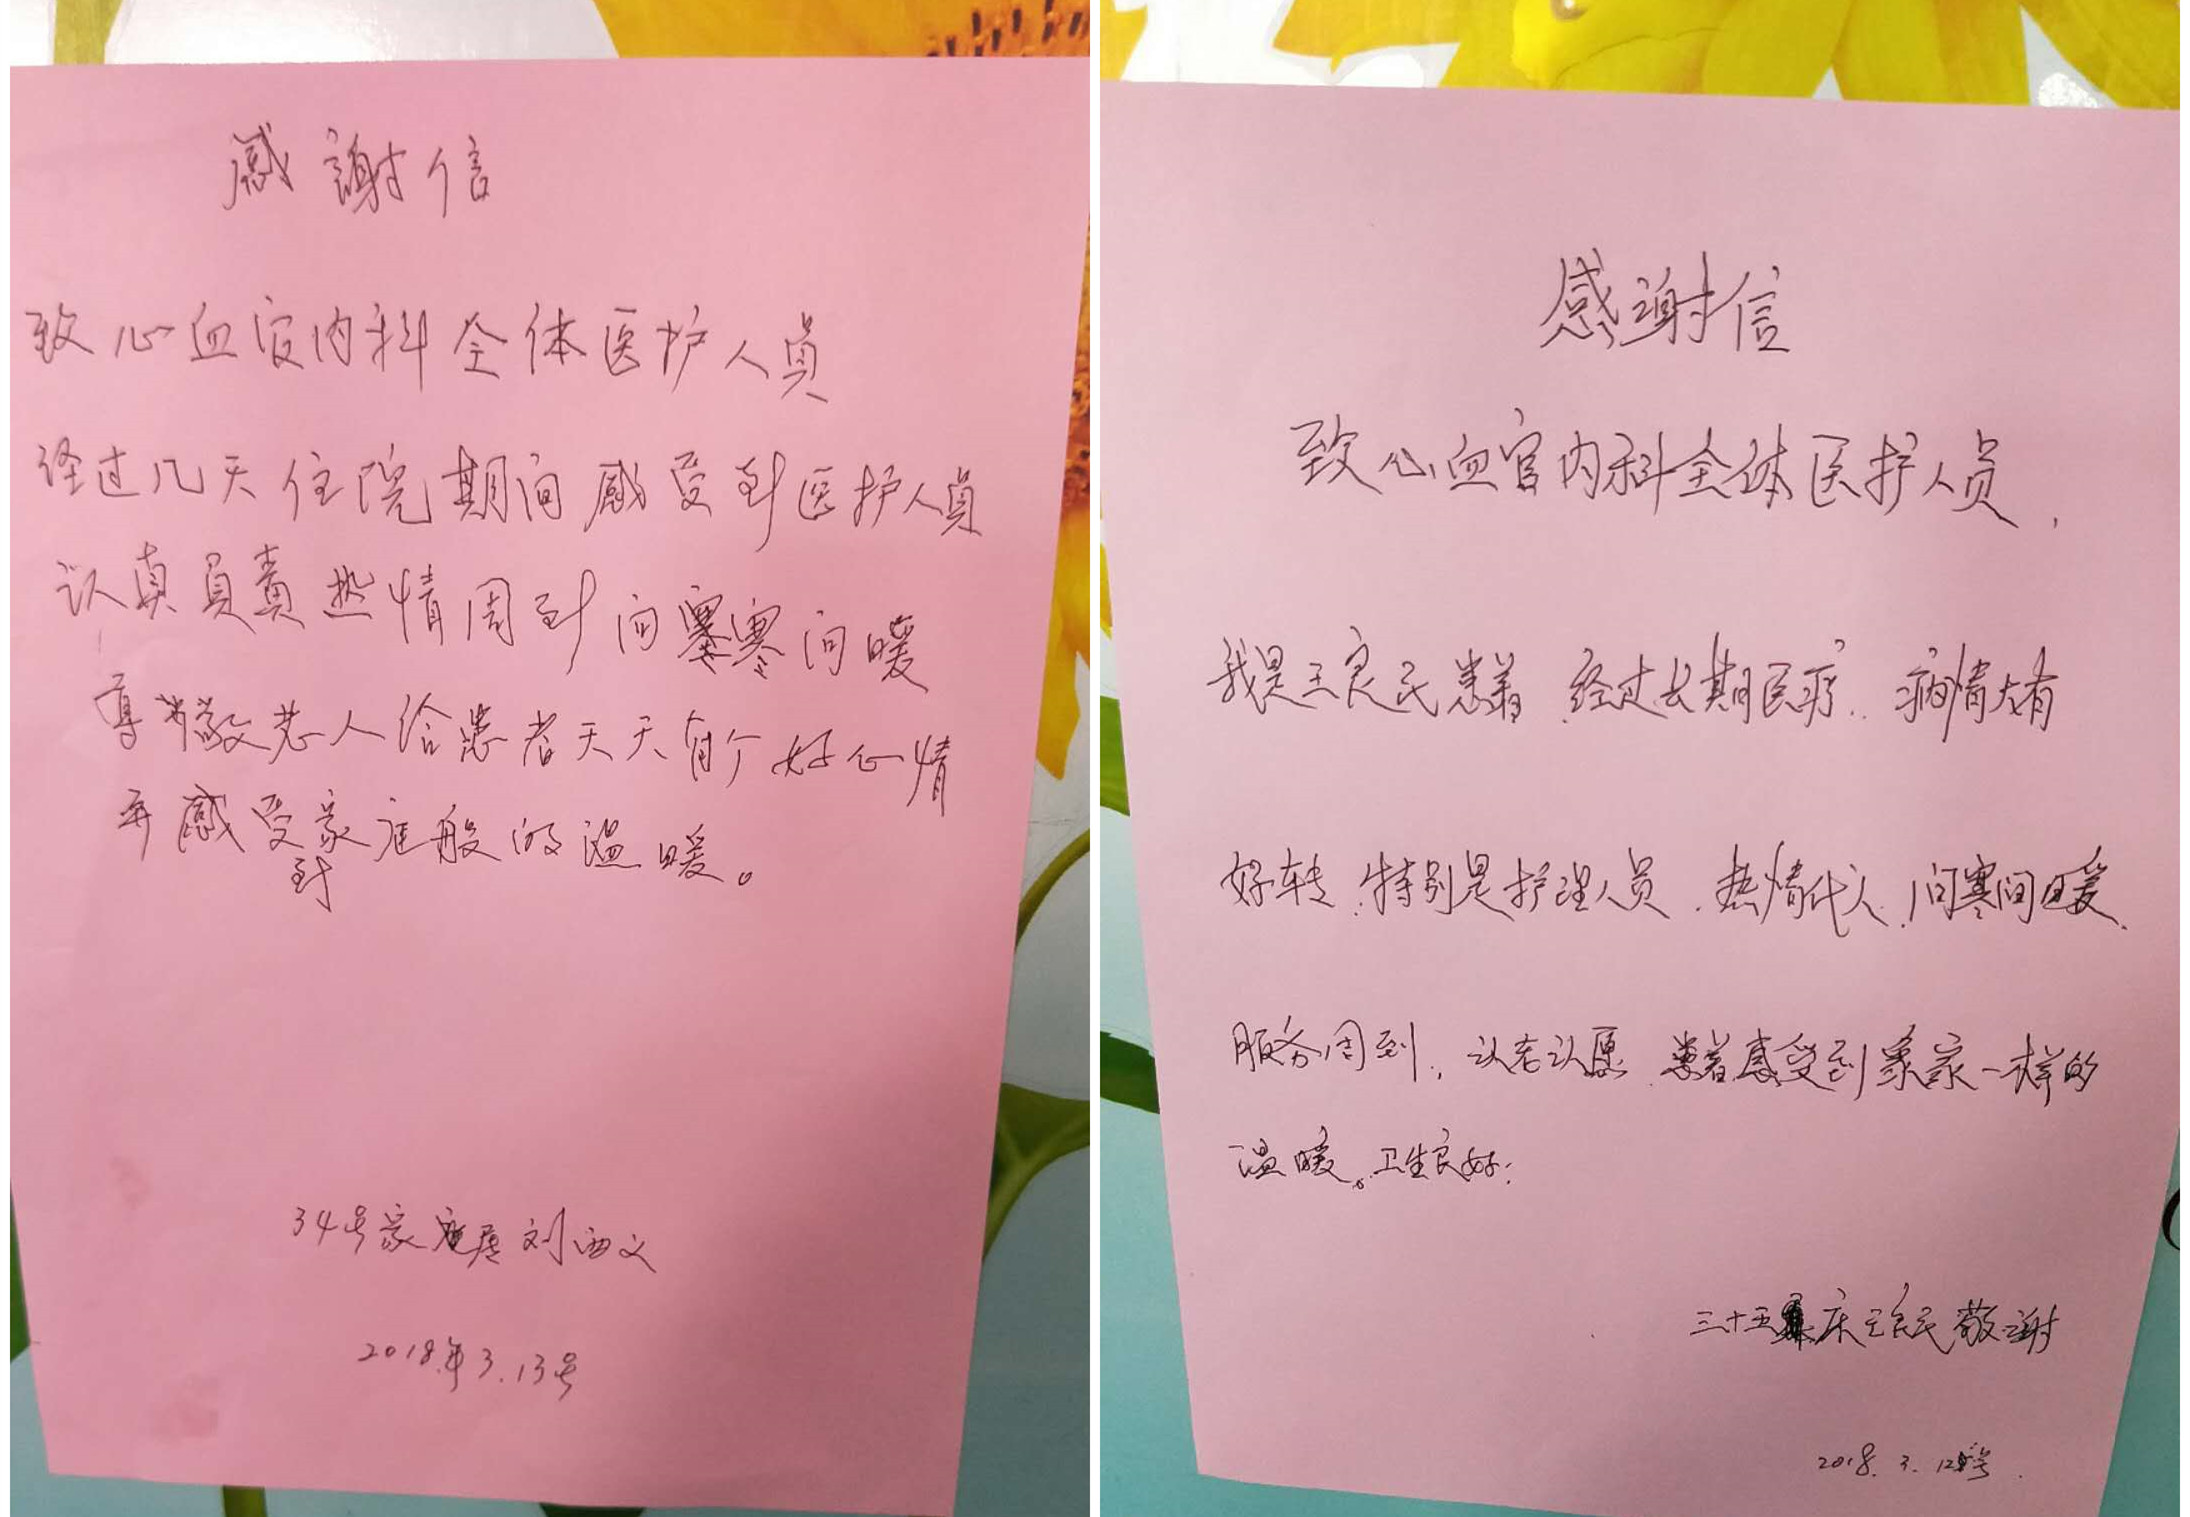 感謝信
致心血官内科全体医护人员
经过几天住院期间感受到医护人員
认真員責热情周到问寒问暖
尊敬老人给患者天天有个好心情
并感受到家庭般的温暖。
34号家属刘西义
2018年3.13号
感谢信
致心血官内科全体医护人员,
我是王良民患者.经过长期医疗.病情大有
好转.特别是护理人员.热情代人.问寒问暖.
服务周到,认老认愿.患者感受到象家一样的
温暖。卫生良好:
三十五床王良民敬谢
2018.3.12号.